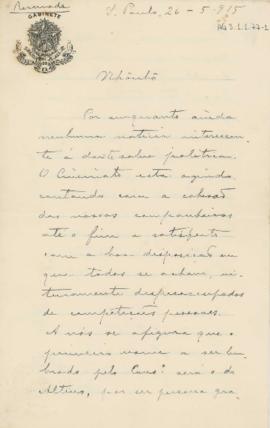 Reservada
GABINETE
S. Paulo, 26 - 5 - 915
Nhônhô
Por emquanto ainda
nenhuma noticia interessan-
te á dar-te sobre politica.
O Cincinato está agindo,
contando com a cohesão
dos nossos companheiros
até o fim e satisfeito
com a boa disposição em
que todos se acham, in-
teiramente despreoccupados
de competições pessoaes.
A nós se afigura que o
primeiro nome a ser lem-
brado pelo Cons.º será o do
Altino, por ser pessoa gra-